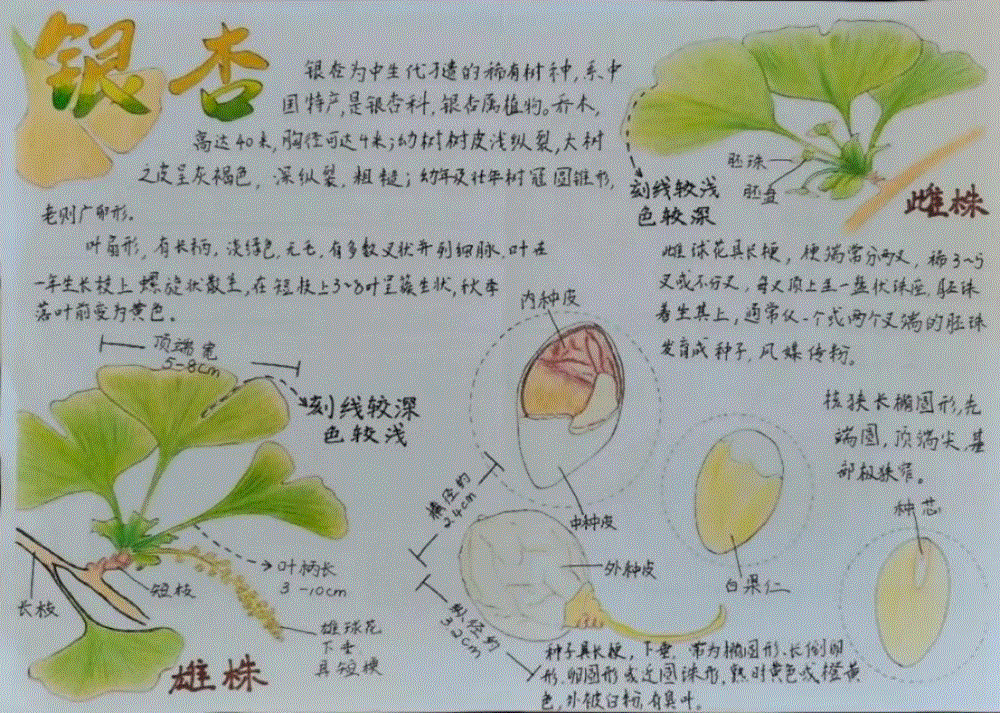 银杏
银杏为中生代孑遗的稀有树种,系中
国特产,是银杏科,银杏属植物。乔木,
高达40米,胸径可达4米;幼树树皮浅纵裂,大树
之皮呈灰褐色,深纵裂,粗糙;幼年及壮年树冠圆锥形,
老则广卵形。
叶扇形,有长柄,淡绿色,无毛,有多数叉状并列细脉,叶在
一年生长枝上螺旋状散生,在短枝上3~8叶呈簇生状,秋季
落叶前变为黄色。
胚珠
胚盘
刻线较浅
色较深
雌株
雌球花具长梗,梗端常分两叉,稀3~5
叉或不分叉,每叉顶生一盘状珠座,胚珠
着生其上,通常仅一个或两个叉端的胚珠
发育成种子,风媒传粉。
顶端宽
5-8cm
刻线较深
色较浅
叶柄长
3-10cm
长枝
短枝
雄球花
下垂
具短梗
雄株
内种皮
中种皮
横径约
2.4cm
外种皮
纵径约
3.2cm
白果仁
核狭长椭圆形,先
端圆,顶端尖,基
部极狭窄。
种芯
种子具长梗,下垂,常为椭圆形、长倒卵
形、卵圆形或近圆珠形,熟时黄色或橙黄
色,外被白粉,有臭叶。